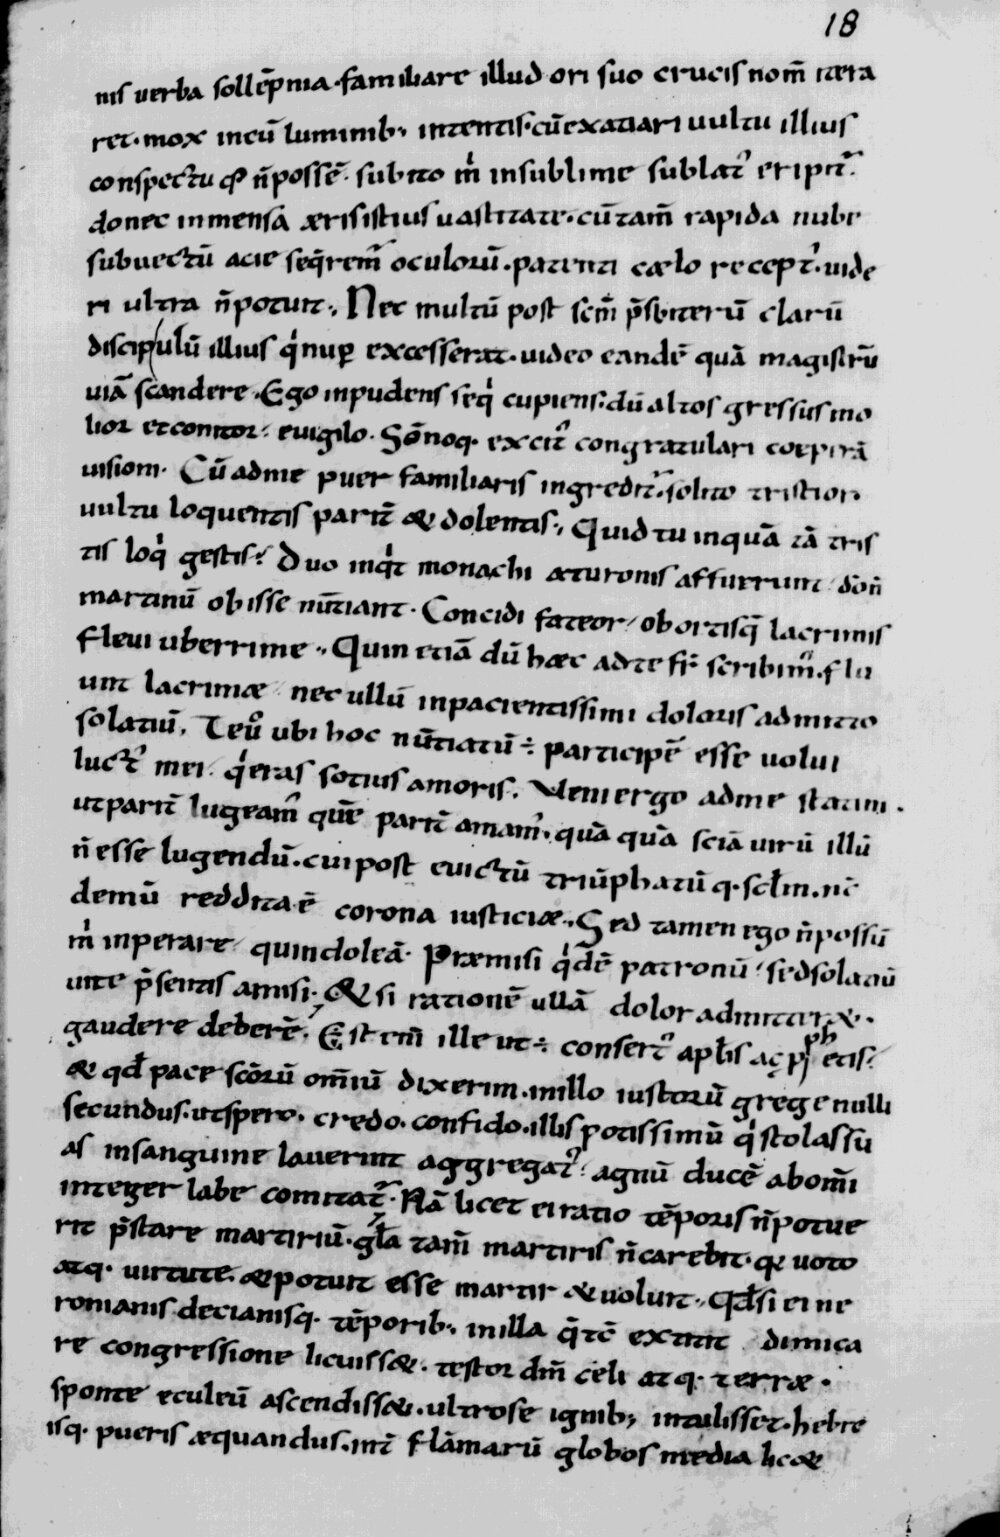 18
nis verba sollēpnia · familiare illud ori suo crucis nom̄ itera
ret · mox incū luminib; intentis · cū exatiari vultu illius
conspectu ꝙ n̄ possē · subito m̍ insublime sublat᾽ eripit᾽ ·
donec inmensā aeris istius vastitate · cū tam̄ rapida nube
subvectū acie seq̄rem᾽ oculorū · patenti caelo recept᾽ · vide
ri ultra n̄ potuit · Nec multū post scm̄ p̄sbiterū clarū
discipulū illius q̍ nup̲ excesserat · video eandē quā magistrū
viā scandere · Ego inpudens seq̍ cupiens · dū altos gressus mo
lior et conitor · evigilo · Sōnoq· excit᾽ congratulari coeperā
visioni · Cū ad me puer familiaris ingredit᾽ · solito tristior
vultu loquentis parit̄ & dolentis · Quid tu inquā tā tris
tis loq̍ gestis? Duo inq̍t monachi a turonis affuerunt / don̄
martinū obisse nūtiant · Concidi fateor / obortisq̄ lacrimis
flevi uberrime · Quin etiā dū haec ad te fr̄ scribim᾽ · flu
unt lacrimae nec ullū inpacientissimi doloris admitto
solatiū · Te v̊ ubi hoc nūtiatū ÷ participē esse volui
luct᾽ mei · q̍ eras sotius amoris · Veni ergo ad me statim ·
ut parit̄ lugeam᾽ quē parit̄ amam᾽ · quā quā sciā virū illū
n̄ esse lugendū · cui post evictū triūphatū q· sc̄lm · nc̄
demū reddita ē corona iusticiae · Sed tamen ego n̄ possū
m̍ inperare quin doleā · Praemisi q̍dē patronū / sed solatiū
vite p̄sentis amisi · & si rationē ullā dolor admitter& ·
gaudere deberē · Est em̄ ille ut ÷ consert᾽ apl̄is ac p
ph
etis ·
& qd̄ pace scōrū om̄iū dixerim · in illo iustorū grege nulli
secundus · ut spero · credo · confido · illis potissimū q̍ stolas su
as in sanguine laverunt aggregat᾽ · agnū ducē ab om̄i
integer labe comitat᾽ · Nā licet ei ratio tēporis n̄ potue
rit p̄stare martiriū · gl̄a tam̄ martiris n̄ carebit · q· voto
atq· virtute · & potuit esse martir & voluit · Qd̄ si ei ne
ronianis decianisq· tēporib; in illa q̄ tc̄ extitit dimica
re congressione licuiss& · testor dm̄ celi atq· terrae ·
sponte eculeū ascendiss& · ultro se ignib; intulisset · hebre
isq· pueris aequandus · int̄ flāmarū globos media lic&